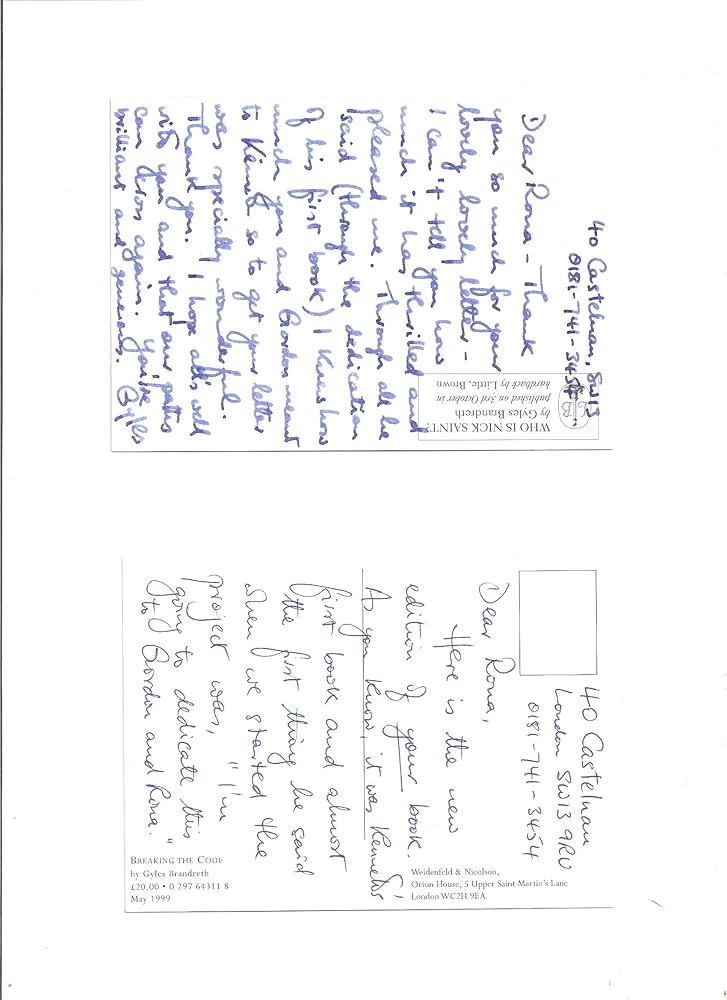 40 Castelnau, SW13
0181-741-3454
Dear Rona - Thank
you so much for your
lovely lovely letter -
I can't tell you how
much it has thrilled and
pleased me. Through all he
said (through the dedication
of his first book) I knew how
much you and Gordon meant
to Kenneth so to get your letter
was specially wonderful.
Thank you. I hope all's well
with you and that our paths
can cross again. You're
brilliant and generous. Gyles
WHO IS NICK SAINT?
by Gyles Brandreth
published on 3rd October in
hardback by Little, Brown
40 Castelnau
London SW13 9RU
0181-741-3454
Dear Rona,
Here is the new
edition of your book.
As you know, it was Kenneth's
first book and almost
the first thing he said
when we started the
project was, "I'm
going to dedicate this
to Gordon and Rona."
BREAKING THE CODE
by Gyles Brandreth
£20.00 • 0 297 64311 8
May 1999
Weidenfeld & Nicolson,
Orion House, 5 Upper Saint Martin's Lane
London WC2H 9EA